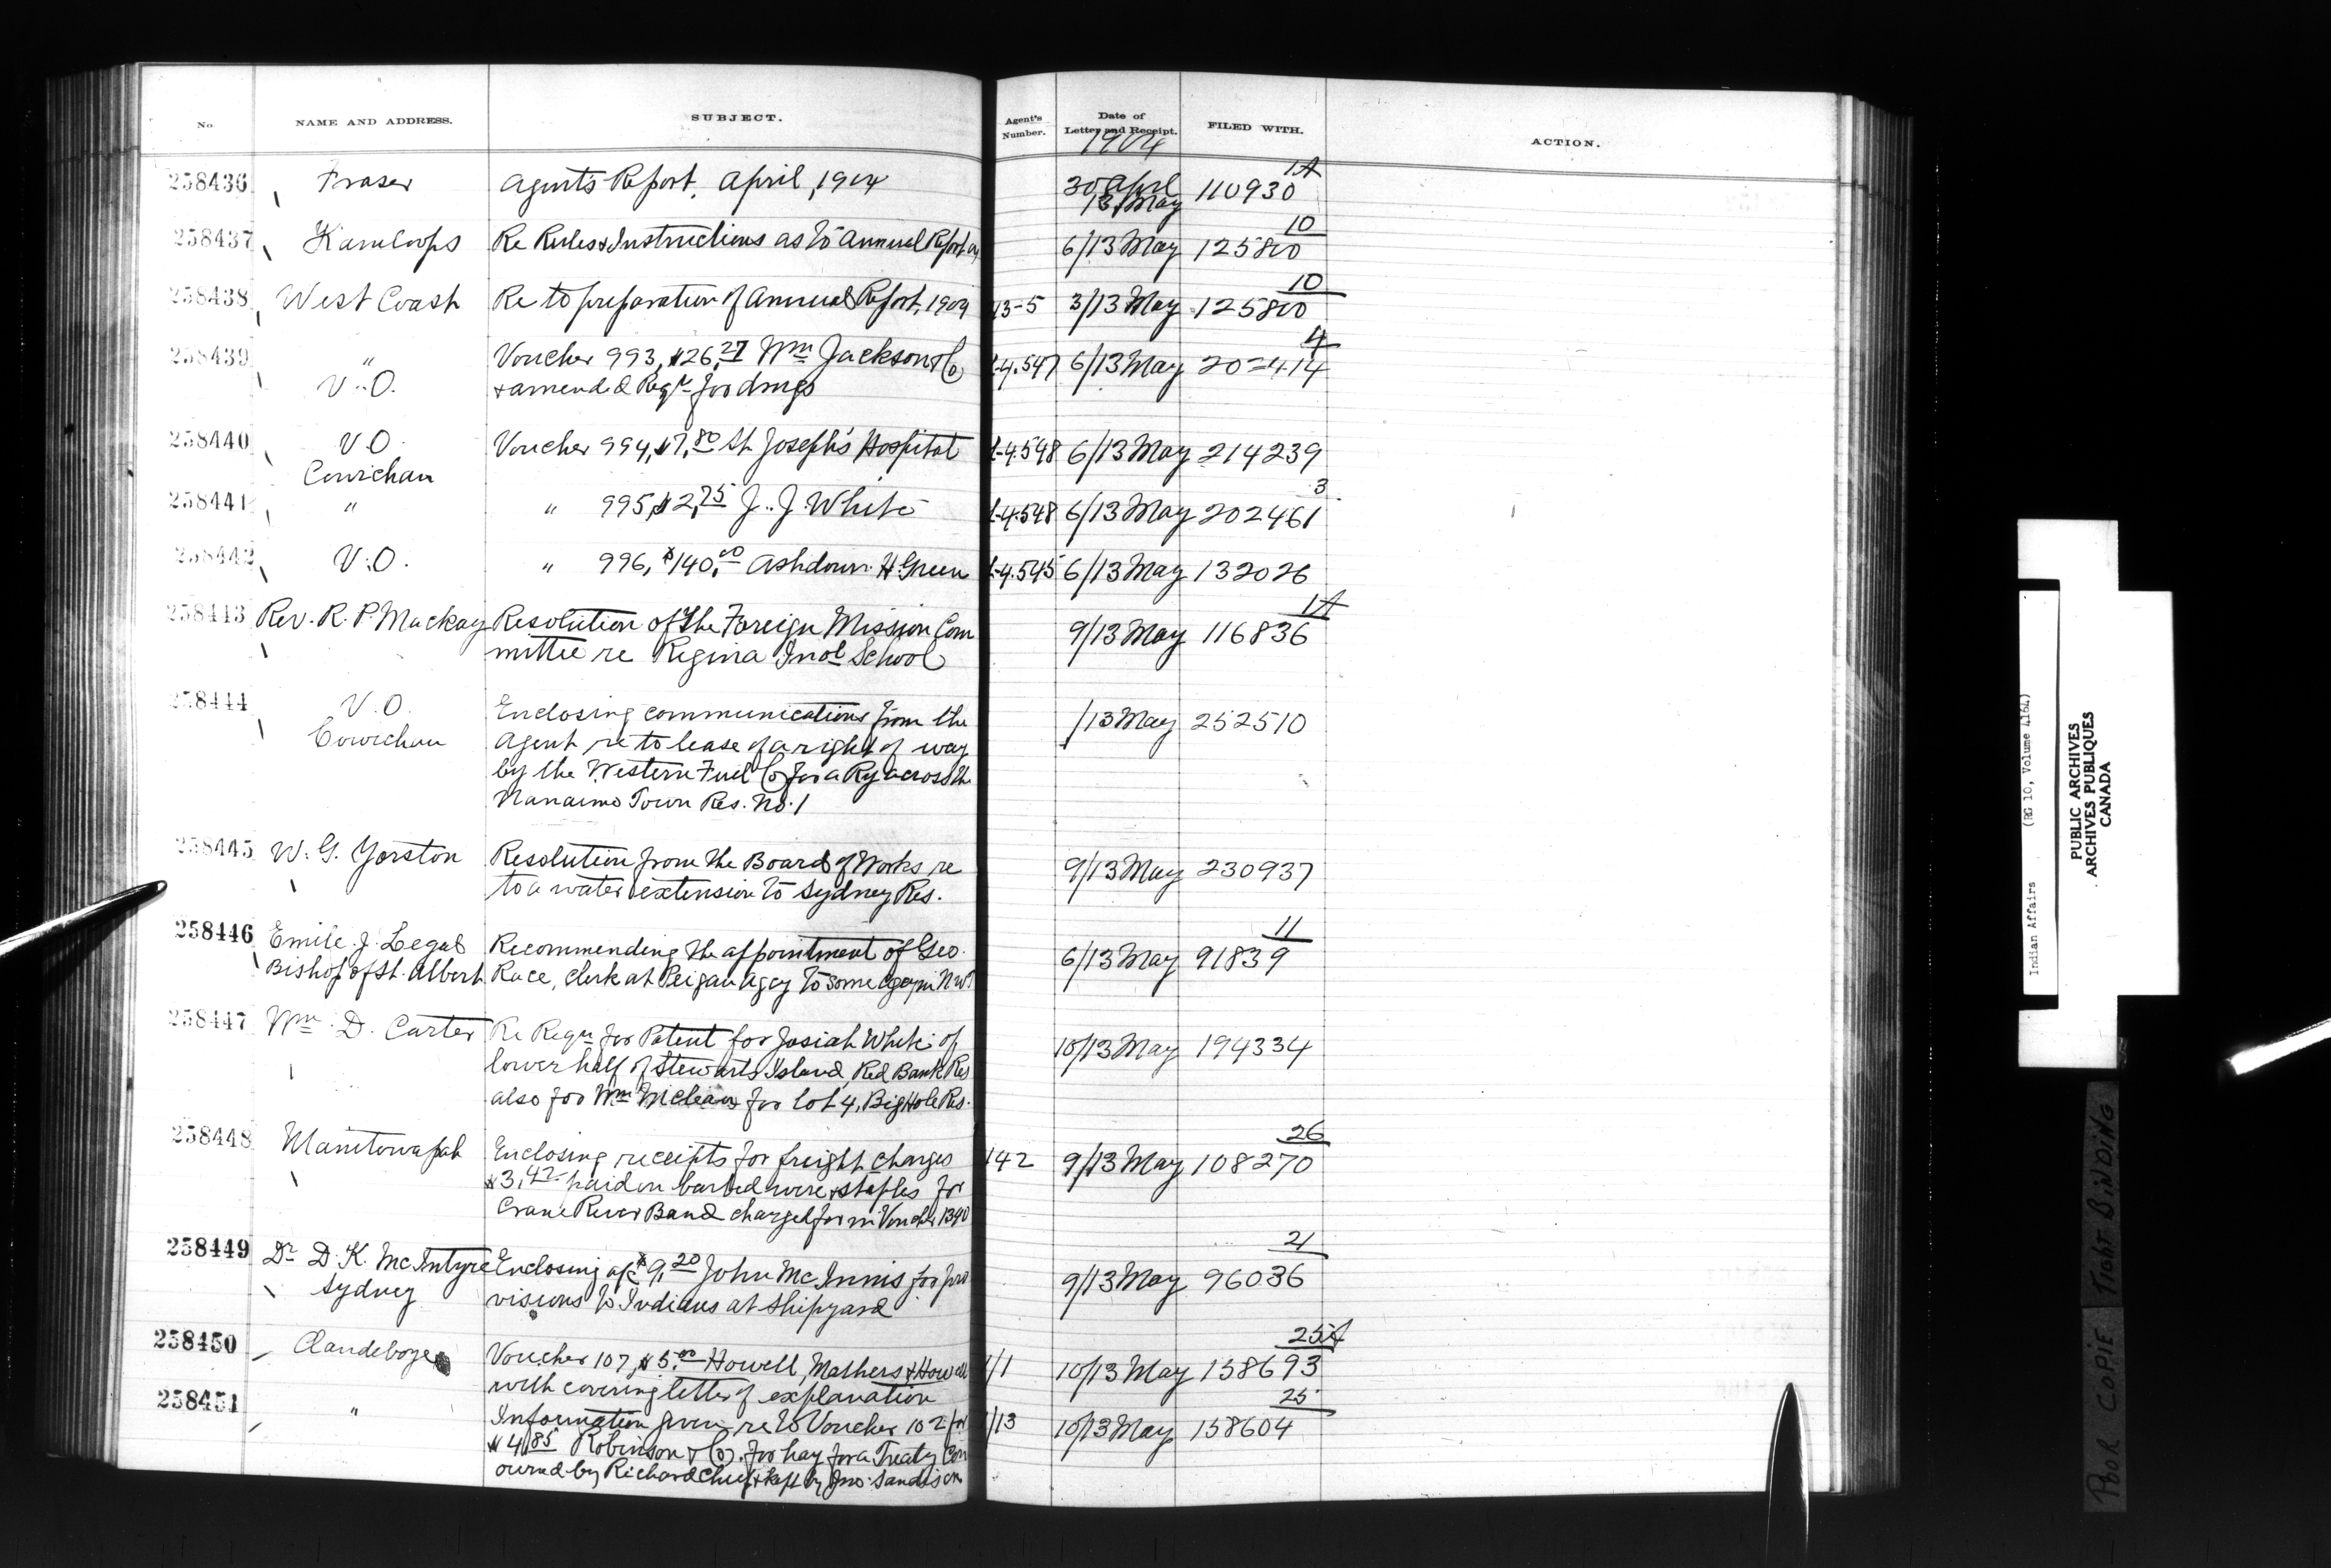 No. NAME AND ADDRESS. SUBJECT. Agent's Number. Date of Letter and Receipt. FILED WITH. ACTION.
1904
258436 Fraser Agent's Report, April, 1904 30 April 13 May 110930 1A
258437 Kamloops Re Rules & Instructions as to Annual Report 6/13 May 125800 10
258438 West Coast Re to preparation of Annual Report, 1904 13-5 3/13 May 125800 10
258439 " Voucher 993, $26.27 Wm Jackson & Co 4.547 6/13 May 20=414 4
V.O. & amended Reqn for drugs
258440 V.O. Voucher 994, $7.80 St. Joseph's Hospital 4.548 6/13 May 214239
Cowichan
258441 " " 995, $2.75 J. J. White 4.548 6/13 May 202461 3
258442 V.O. " 996, $140.00 Ashdown H. Green 4.545 6/13 May 132026
258443 Rev. R. P. Mackay Resolution of the Foreign Mission Com 9/13 May 116836 1A
mittee re Regina Indl School
258444 V.O. Enclosing communications from the /13 May 252510
Cowichan Agent re to lease of a right of way
by the Western Fuel Co for a Ry across the
Nanaimo Town Res. No. 1
258445 W. G. Yorston Resolution from the Board of Works re 9/13 May 230937
to a water extension to Sydney Res.
258446 Emile J. Legal Recommending the appointment of Geo. 6/13 May 91839 11
Bishop of St. Albert Race, Clerk at Peigan Agcy to some Agcy in NWT
258447 Wm. D. Carter Re Reqn for Patent for Josiah White of 10/13 May 194334
lower half of Stewarts Island, Red Bank Res
also for Wm McLean for lot 4, Big Hole Res.
258448 Manitowapah Enclosing receipts for freight charges 142 9/13 May 108270 26
$3.42 paid on barbed wire & staples for
Crane River Band charged for in Voucher 1390
258449 Dr D. K. McIntyre Enclosing a/c $9.20 John McInnis for pro 9/13 May 96036 21
Sydney visions to Indians at Shipyard
258450 Clandeboye Voucher 107, $5.00 Howell, Mathers & Howell 1/1 10/13 May 158693 25A
with covering letter of explanation
258451 " Information given re to Voucher 102 for /13 10/13 May 158604 25
$4.85 Robinson & Co. for hay for a Treaty Cow
owned by Richard Chief & kept by Jno. Sandison
Indian Affairs (RG 10, Volume 4164)
PUBLIC ARCHIVES
ARCHIVES PUBLIQUES
CANADA
POOR COPIE TIGHT BINDING